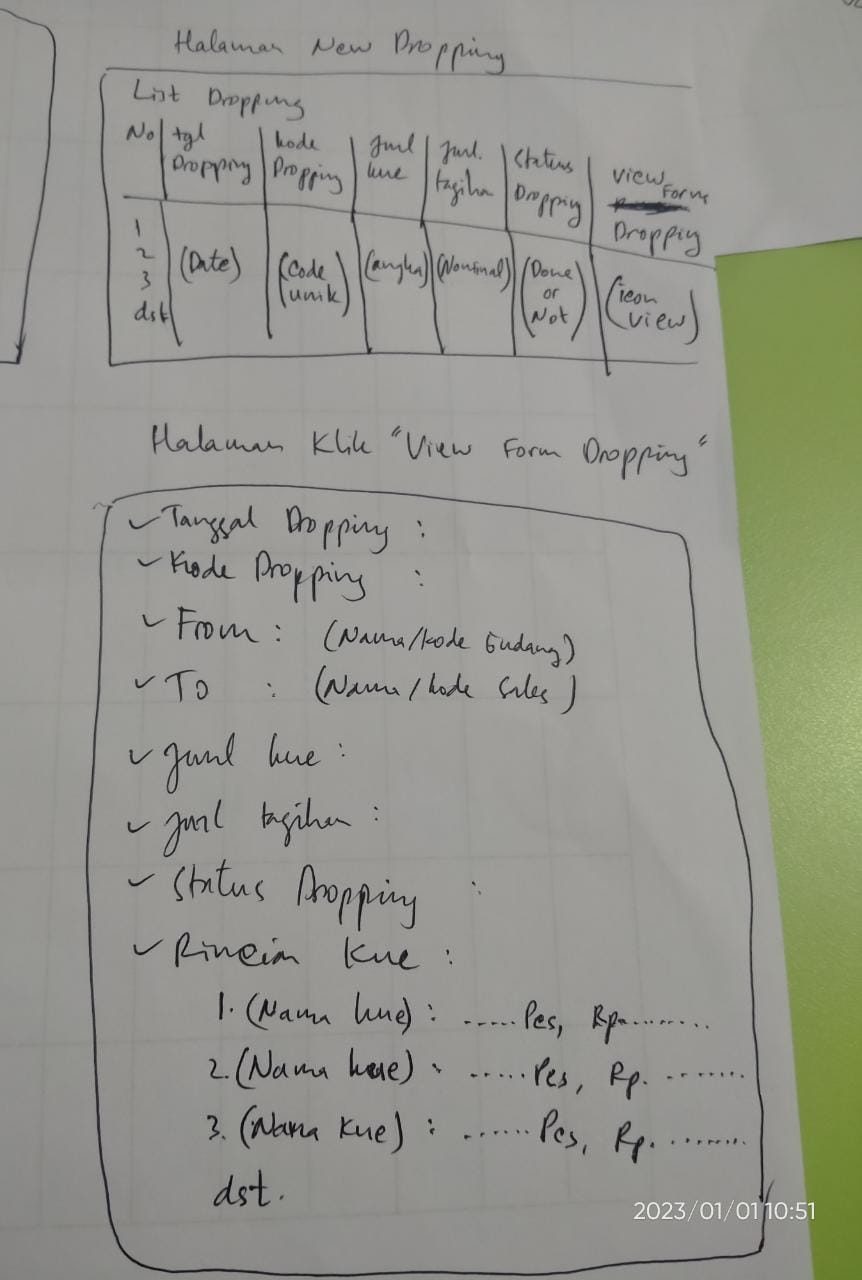 Halaman New Dropping
List Dropping
No | tgl Dropping | kode Dropping | Juml kue | Juml. tagihan | Status Dropping | view Form Dropping
1
2
3
dst
(Date) | (Code unik) | (angka) | (Nominal) | (Done or Not) | (icon view)
Halaman Klik "View Form Dropping"
✓ Tanggal Dropping :
✓ Kode Dropping :
✓ From : (Nama/kode Gudang)
✓ TO : (Nama/kode Sales)
✓ juml kue :
✓ juml tagihan :
✓ Status Dropping :
✓ Rincian Kue :
1. (Nama kue) : ...... Pcs, Rp.........
2. (Nama kue) : ...... Pcs, Rp. ........
3. (Nama Kue) : ...... Pcs, Rp. ........
dst.
2023/01/01 10:51